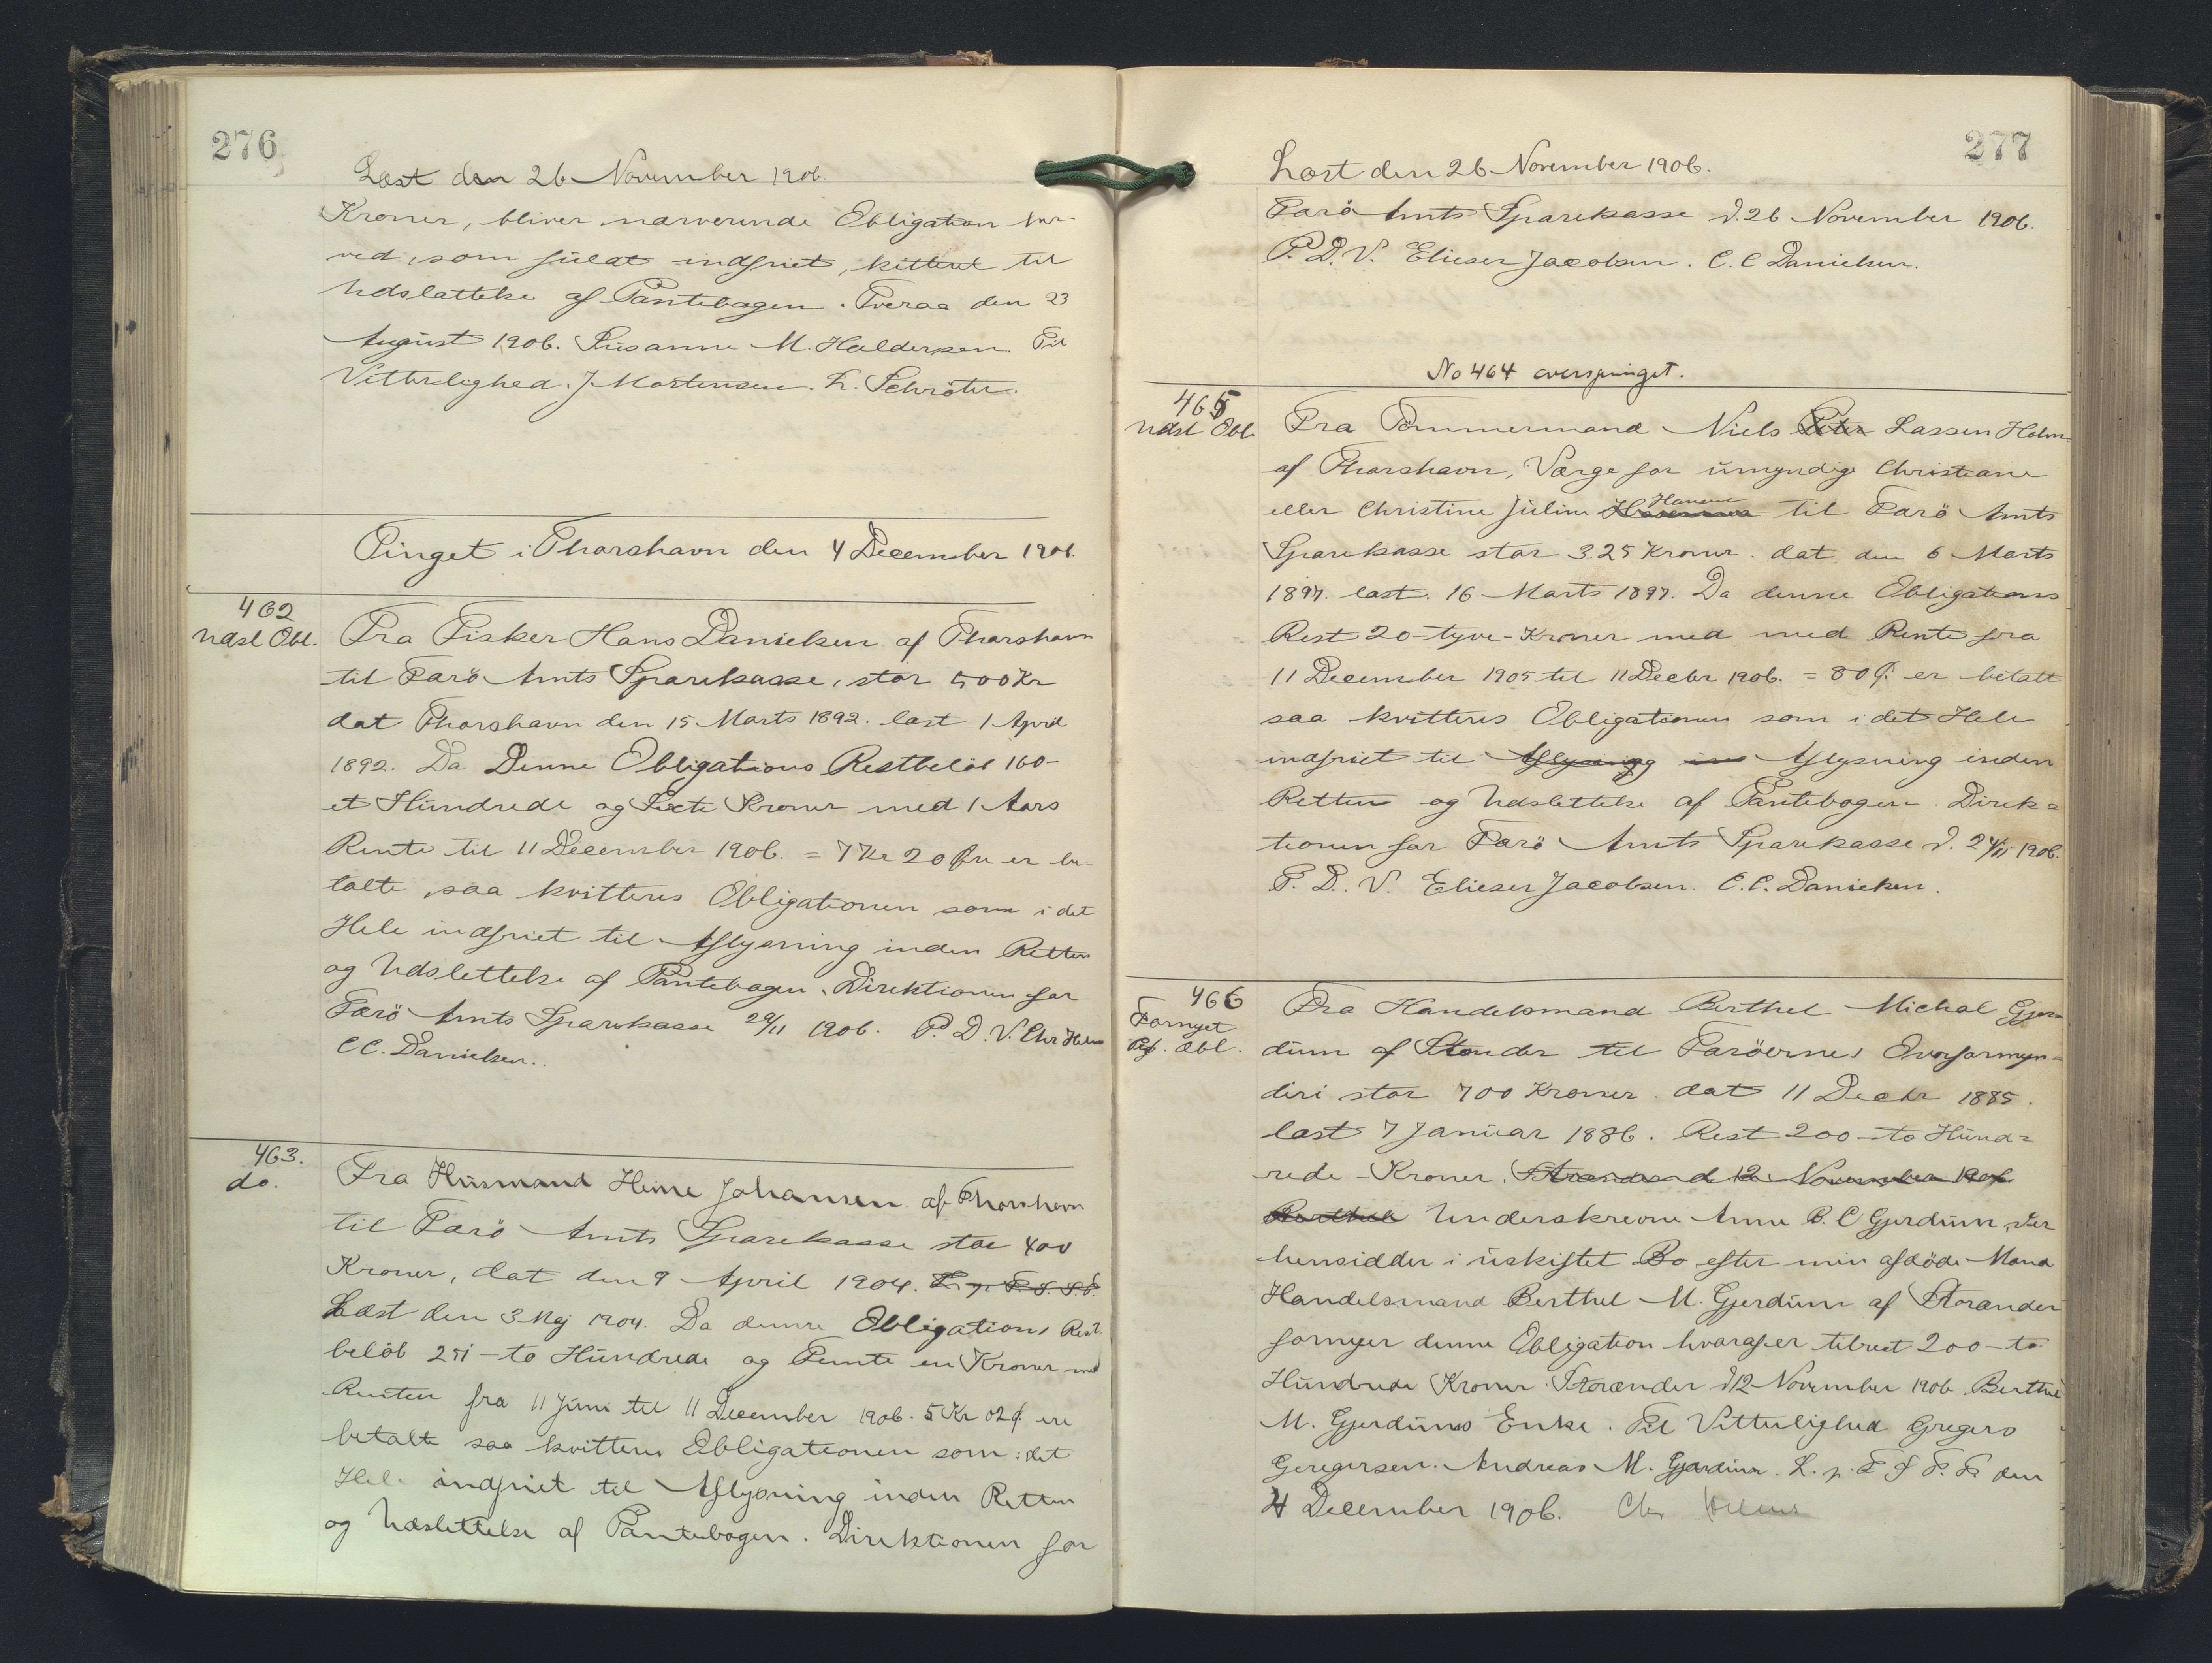 276
Læst den 26 November 1906.
Kroner, bliver nærværende Obligation her-
ved, som fuldt indfriet, kvitteret til
Udslættelse af Pantebogen. Tveraa den 23
August 1906. Susanne M. Haldersen. Til
Vitterlighed. J. Mortensen. L. Schröter.
Tinget i Thorshavn den 4 December 1906.
462
Udsl Obl.
Fra Fisker Hans Danielsen af Thorshavn
til Færö Amts Sparekasse, stor 500 Kr
dat Thorshavn den 15 Marts 1892. læst 1 April
1892. Da Denne Obligations Restbelöb 160-
et Hundrede og Sexti Kroner med 1 Aars
Rente til 11 December 1906. = 7 Kr 20 Øre er be-
talte, saa kvitteres Obligationen som i det
Hele indfriet til Aflysning inden Retten
og Udslettelse af Pantebogen. Direktionen for
Færö Amts Sparekasse 29/11 1906. P. D. V. Chr Holm
C C. Danielsen..
463.
do.
Fra Husmand Heine Johansen af Thorshavn
til Færö Amts Sparekasse stor 400
Kroner, dat den 9 April 1904.
Læst den 3 Maj 1904. Da denne Obligations Rest
belöb 251 - to Hundrede og Femti en Kroner med
Renten fra 11 Juni til 11 December 1906. 5 Kr 02 Ø ere
betalte saa kvitteres Obligationen som i det
Hele indfriet til Aflysning inden Retten
og Udslettelse af Pantebogen. Direktionen for
277
Læst den 26 November 1906.
Færö Amts Sparekasse d. 26 November 1906.
P. D. V. Elieser Jacobsen. C. C Danielsen.
No 464 oversprunget.
465
Udsl Obl.
Fra Tömmermand Niels Peter Lassen Holm
af Thorshavn, Værge for umyndige Christiane
eller Christine Juline Hansen til Færö Amts
Sparekasse stor 325 Kroner. dat den 6 Marts
1897. læst. 16 Marts 1897. Da denne Obligations
Rest 20 - tyve - Kroner med med Rente fra
11 December 1905 til 11 Decbr 1906. = 80 Ø. er betalt
saa kvitteres Obligationen som i det Hele
indfriet til Aflysning in Aflysning inden
Retten og Udslettelse af Pantebogen. Direk=
tionen for Færö Amts Sparekasse d. 24/11 1906.
P. D. V. Elieser Jacobsen. C. C. Danielsen.
466
Fornyet
Obl.
Fra Handelsmand Berthel Michal Gjer=
dum af Storender til Færöernes Overformyn=
deri stor 700 Kroner. dat 11 Decbr 1885.
læst 7 Januar 1886. Rest 200 - to Hund=
rede - Kroner. Storænder d 12 November 1906
Berthel Underskrevne Anne B. C Gjerdum, der
hensidder i uskiftet Bo efter min afdöde Mand
Handelsmand Berthel M. Gjerdum af Storænder
fornyer denne Obligation hvoraf er tilrest 200 - to
Hundrede Kroner. Storænder d 12 November 1906. Berthel
M. Gjerdums Enke. Til Vitterlighed Gregers
Geregersen. Andreas M. Gjerdum. L. p. F. S. F. T. den
4 December 1906.